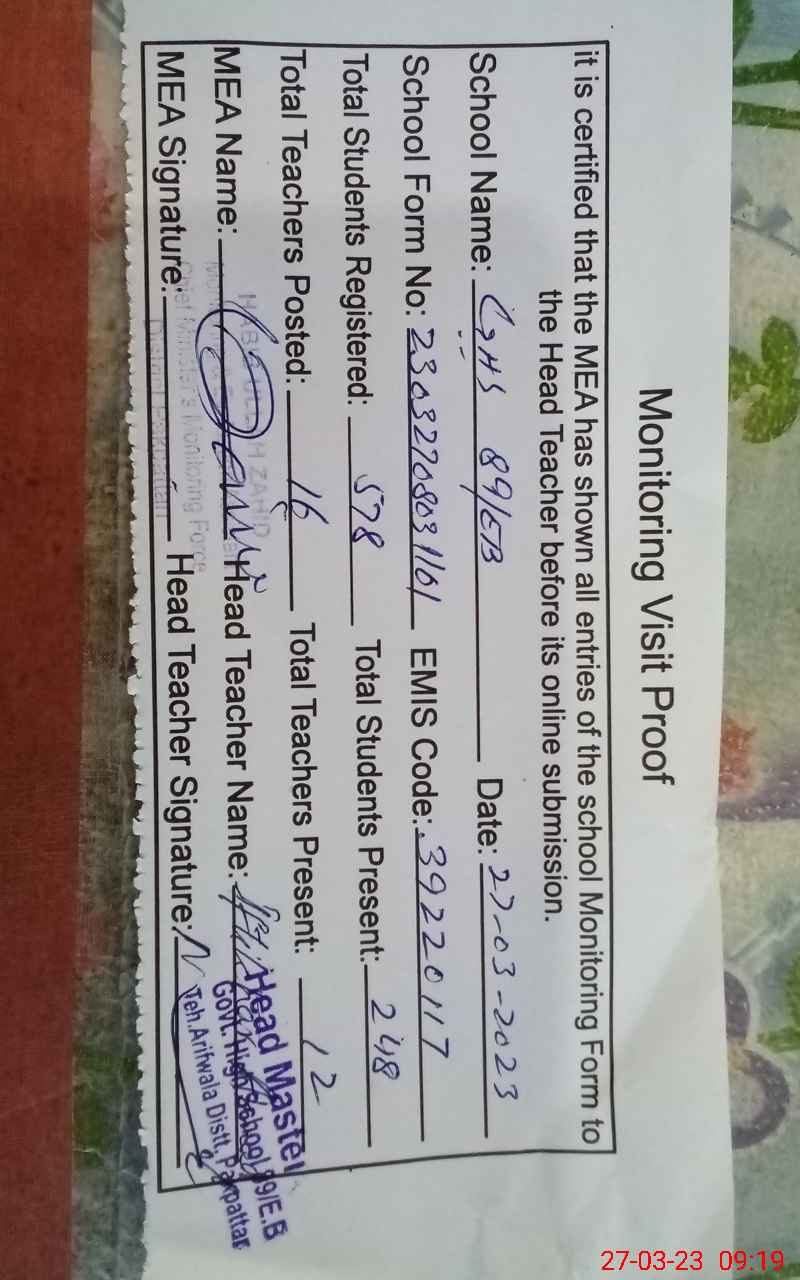 Monitoring Visit Proof
it is certified that the MEA has shown all entries of the school Monitoring Form to
the Head Teacher before its online submission.
School Name: GHS 89/EB Date: 27-03-2023
School Form No: 23032708031101 EMIS Code: 39220117
Total Students Registered: 578 Total Students Present: 248
Total Teachers Posted: 16 Total Teachers Present: 12
MEA Name: Head Teacher Name:
MEA Signature: Head Teacher Signature:
ZAHID
Chief Minister's Monitoring Force
District Pakpattan
Head Master
Govt. High School 99/E.B
Teh. Arifwala Distt. Pakpattan
27-03-23 09:19